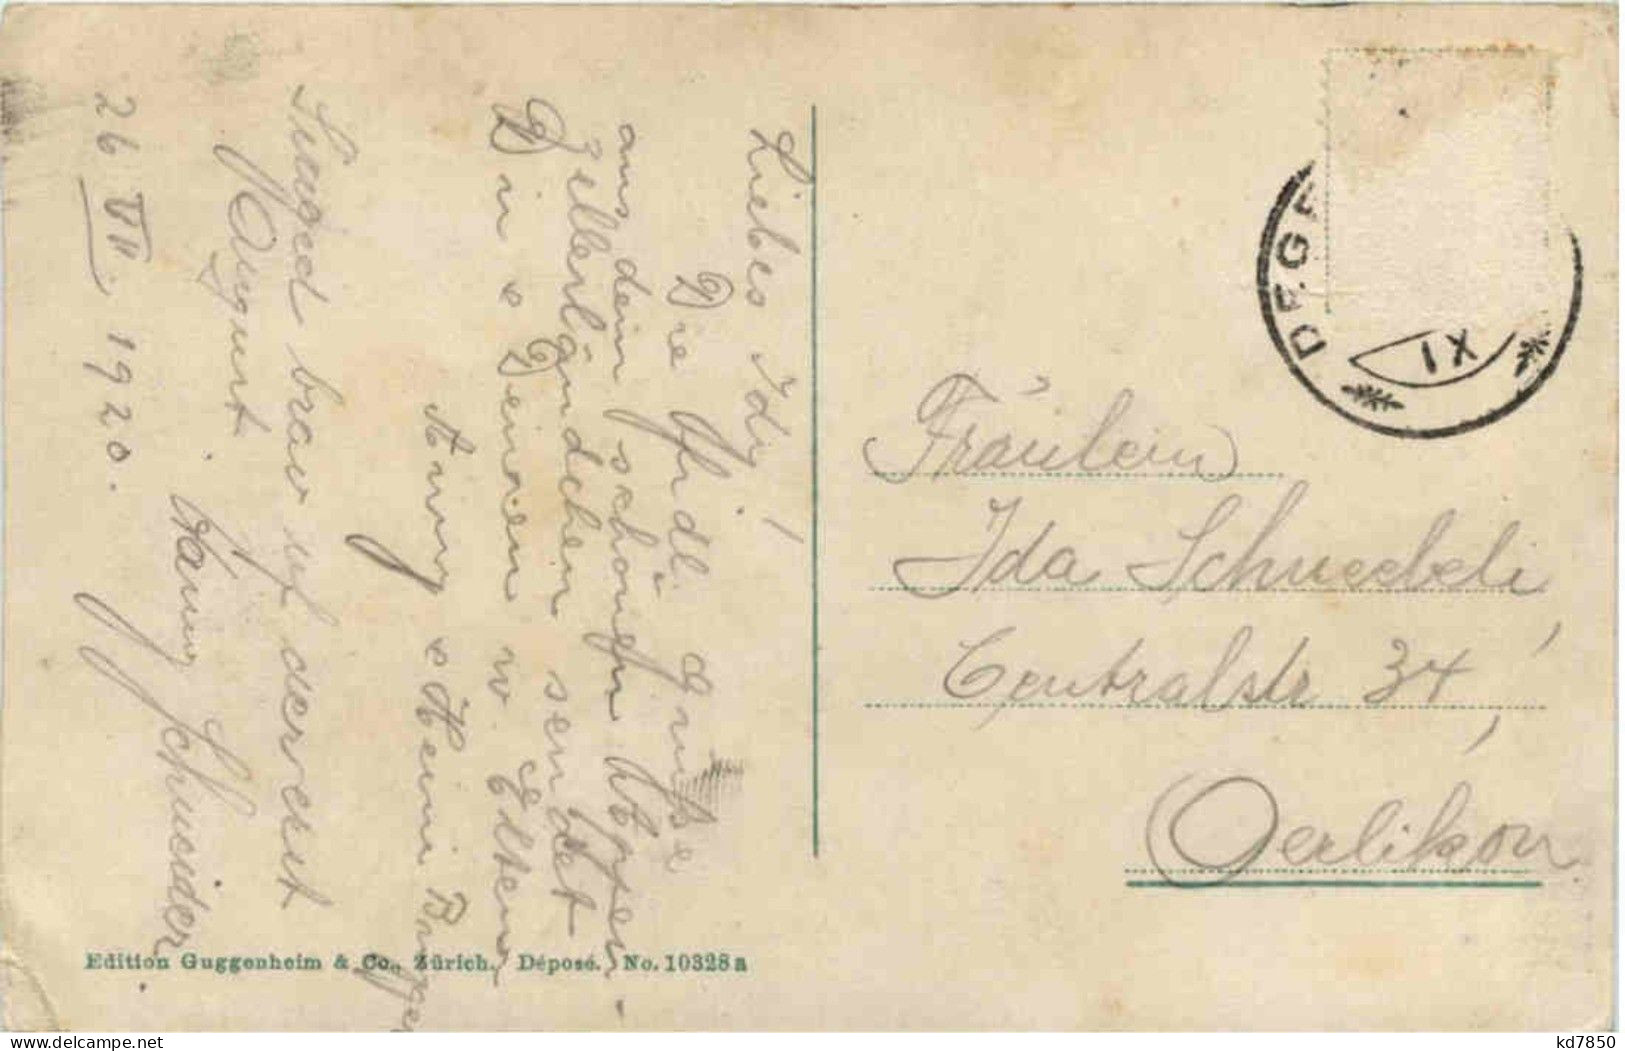 Liebes Idy!
Die frdl. Grüße
aus dem schönen Appen-
zellerländchen sendet
Dir & Deinen w. Eltern
Anny & Heini
brav uf
August
Hanny Schneider.
26. VII. 1920.
DEGE
XI
Fräulein
Ida Schneebeli,
Centralstr 34,
Oerlikon
Edition Guggenheim & Co., Zürich. Déposé. No. 10328 a
kd7850